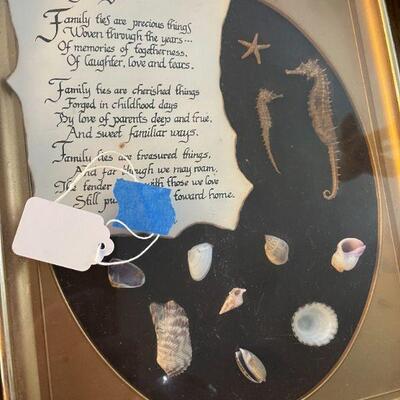 Family ties are precious things
Woven through the years...
Of memories of togetherness,
Of laughter, love and tears.
Family ties are cherished things
Forged in childhood days
By love of parents deep and true,
And sweet familiar ways.
Family ties are treasured things,
And far though we may roam,
The tender with those we love
Still toward home.